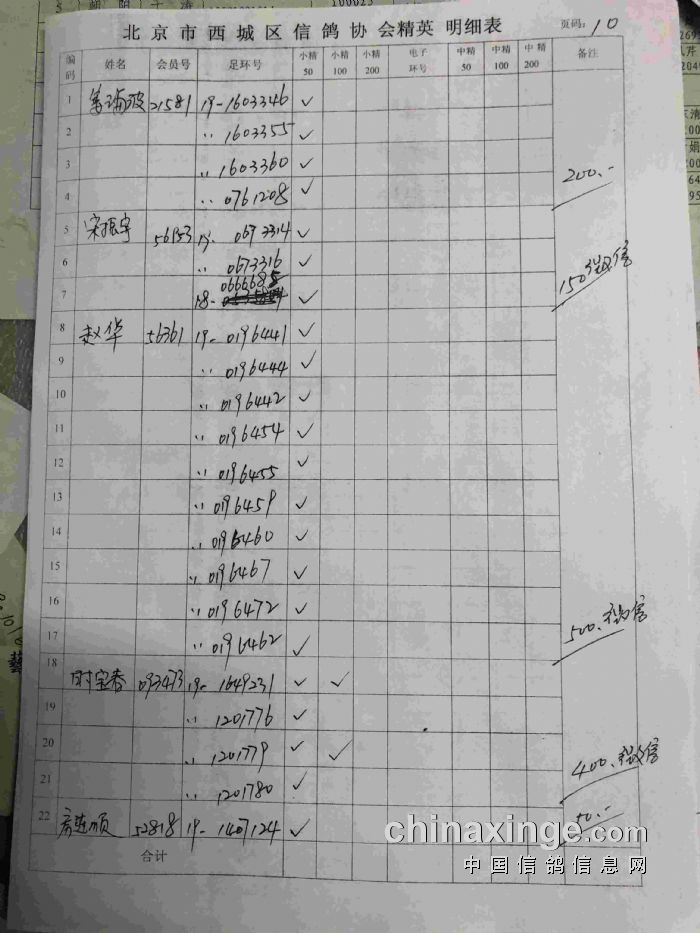 北京市西城区信鸽协会精英 明细表 页码: 10
编码 姓名 会员号 足环号 小精50 小精100 小精200 电子环号 中精50 中精100 中精200 备注
1 21581 19-1603346 ✓
2 〃 1603355 ✓
3 〃 1603360 ✓
4 〃 0761208 ✓ 200.-
5 宋振宇 56153 19- 0673314 ✓
6 〃 0673316 ✓
7 18- 0666685 ✓ 150 微信
8 赵华 56361 19- 0196441 ✓
9 〃 0196444 ✓
10 〃 0196442 ✓
11 〃 0196454 ✓
12 〃 0196455 ✓
13 〃 0196459 ✓
14 〃 0196460 ✓
15 〃 0196467 ✓
16 〃 0196472 ✓
17 〃 0196462 ✓ 500. 微信
18 时宝春 093473 19- 1649231 ✓ ✓
19 〃 1201776 ✓
20 〃 1201779 ✓ ✓
21 〃 1201780 ✓ 400. 微信
22 52818 19- 1407124 ✓ 50.-
合计
chinaxinge.com
中国信鸽信息网